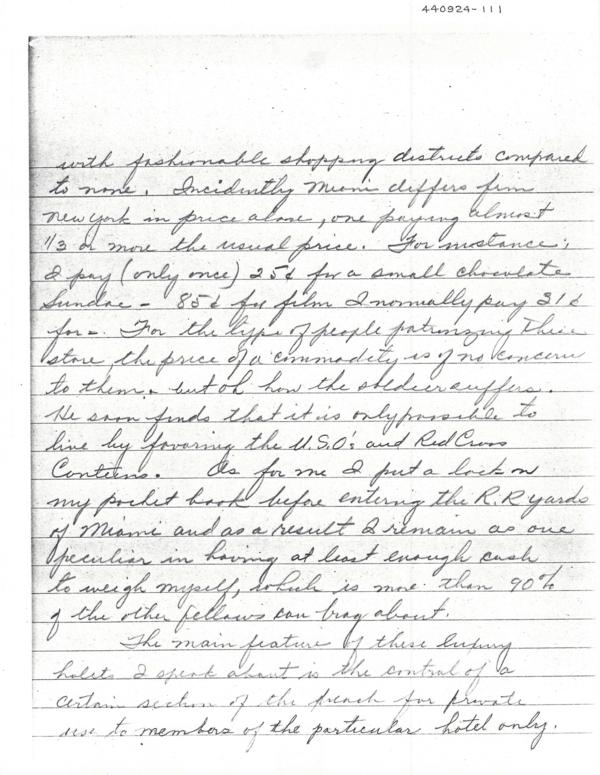 440924-111
with fashionable shopping districts compared
to none. Incidently Miami differs from
New York in price alone, one paying almost
1/3 or more the usual price. For instance;
I pay (only once) 25¢ for a small chocolate
Sundae - 85¢ for film I normally pay 31¢
for -. For the type of people patronizing these
store, the price of a commodity is of no concern
to them. but oh how the soldier suffers.
He soon finds that it is only possible to
live by favoring the U.S.O's and Red Cross
Canteens. As for me I put a lock on
my pocket book before entering the R.R yards
of Miami and as a result I remain as one
peculiar in having at least enough cash
to weigh myself, which is more than 90%
of the other fellows can brag about.
The main feature of these luxury
hotels I speak about is the control of a
certain section of the beach for private
use to members of the particular hotel only.